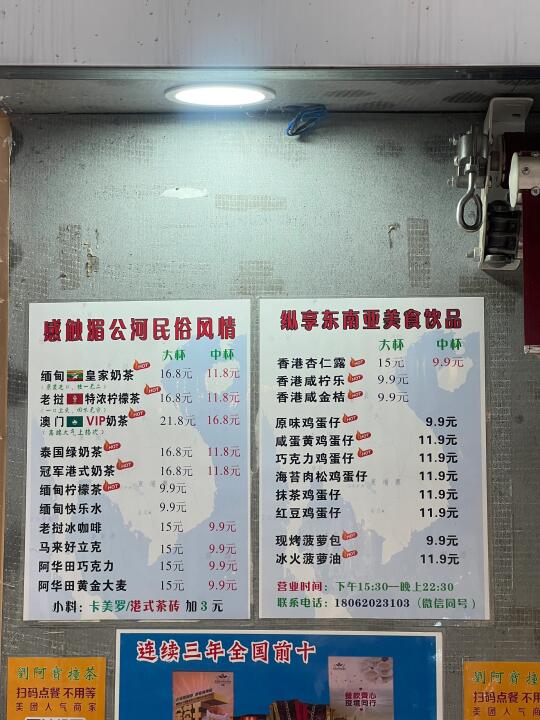 感触湄公河民俗风情
大杯 中杯
缅甸 皇家奶茶 HOT 16.8元 11.8元
老挝 特浓柠檬茶 HOT 16.8元 11.8元
(一口上头，回味无穷)
澳门 VIP奶茶 HOT 21.8元 16.8元
泰国绿奶茶 HOT 16.8元 11.8元
冠军港式奶茶 HOT 16.8元 11.8元
缅甸柠檬茶 HOT 9.9元
缅甸快乐水 9.9元
老挝冰咖啡 15元 9.9元
马来好立克 15元 9.9元
阿华田巧克力 15元 9.9元
阿华田黄金大麦 15元 9.9元
小料：卡美罗/港式茶砖 加3元
纵享东南亚美食饮品
大杯 中杯
香港杏仁露 HOT 15元 9.9元
香港咸柠乐 HOT 9.9元
香港咸金桔 HOT 9.9元
原味鸡蛋仔 HOT 9.9元
咸蛋黄鸡蛋仔 HOT 11.9元
巧克力鸡蛋仔 HOT 11.9元
海苔肉松鸡蛋仔 11.9元
抹茶鸡蛋仔 11.9元
红豆鸡蛋仔 11.9元
现烤菠萝包 HOT 9.9元
冰火菠萝油 HOT 11.9元
营业时间：下午15:30—晚上22:30
联系电话：18062023103（微信同号）
连续三年全国前十
餐飲齊心
疫境同行
劉阿寶撞茶
扫码点餐 不用等
美团人气商家
劉阿寶撞茶
扫码点餐 不用等
美团人气商家